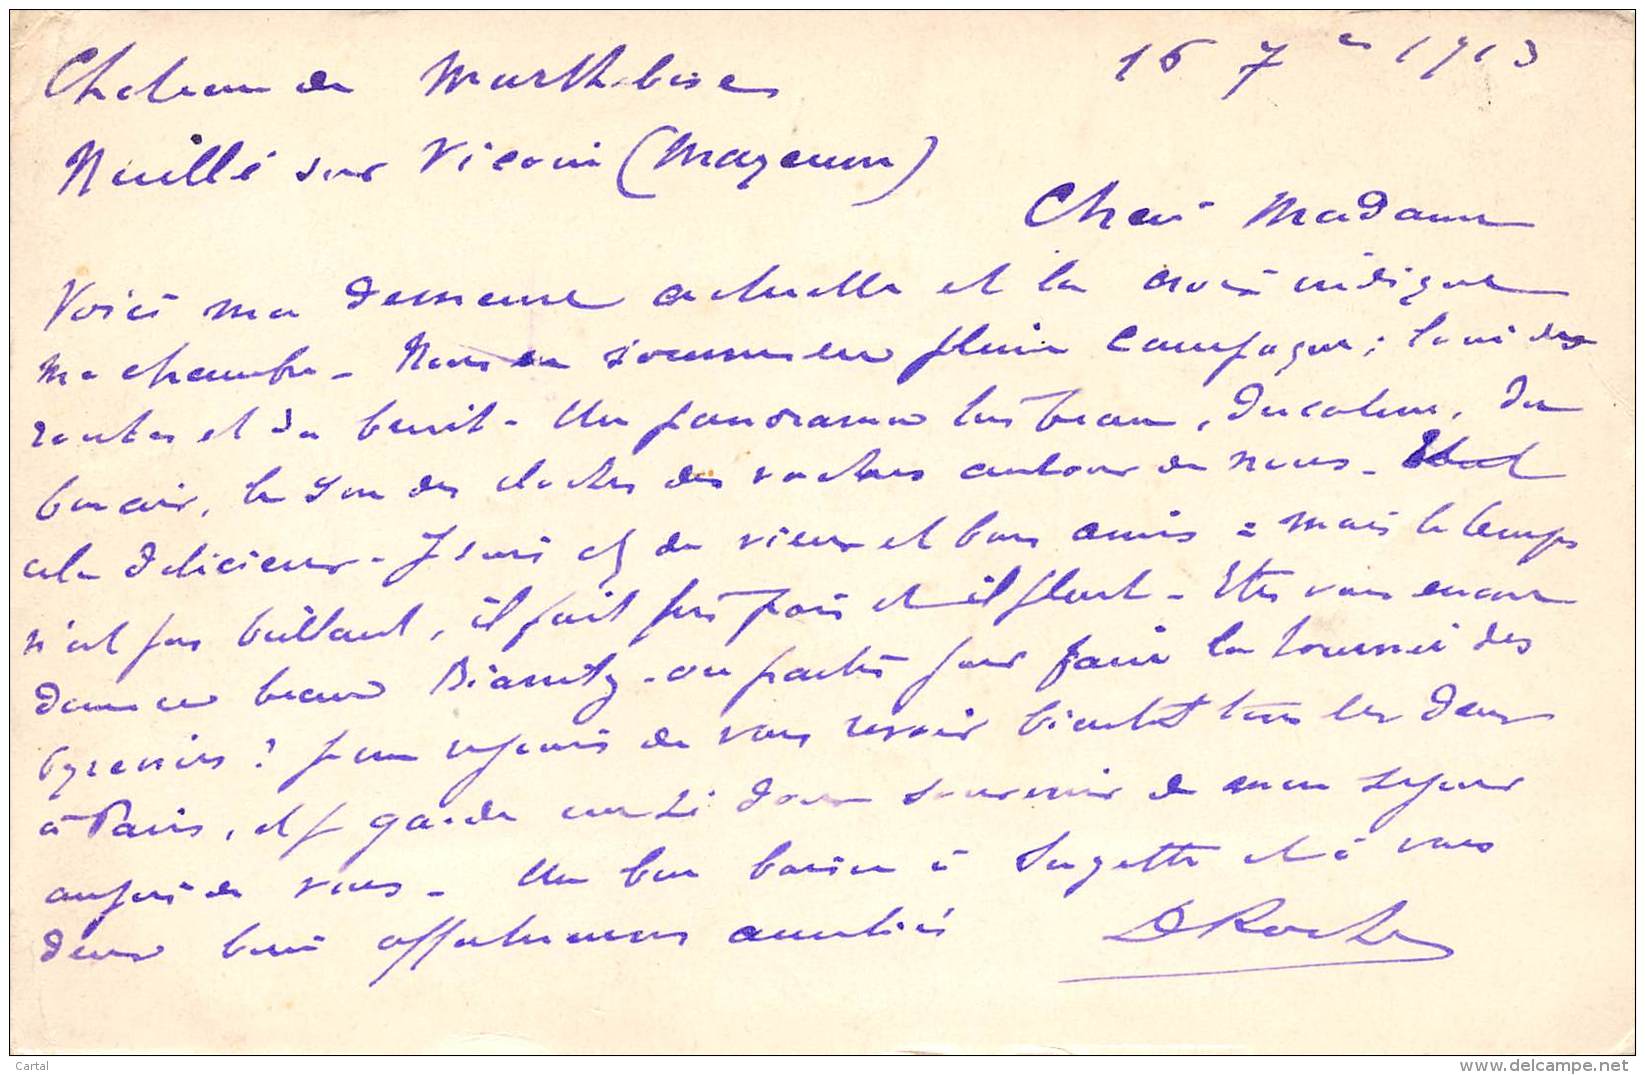 Chateau de Marthebise 16 7re 1913
Nuillé sur Vicoin (Mayenne)
Chère Madame
Voici ma demeure actuelle et la croix indique
ma chambre - Nous sommes en pleine campagne ; loin des
routes et du bruit - Un panorama très beau, du calme, du
bon air, le son des cloches des vaches autour de nous - Tout
cela délicieux - Je suis chez de vieux et bons amis = mais le temps
n'est pas brillant, il fait très frais et il pleut - Etes vous encore
dans ce beau Biarritz - ou partis pour faire la tournée des
Pyrénées ? Je me réjouis de vous revoir bientôt tous les deux
à Paris, et je garde un si doux souvenir de mon séjour
auprès de vous - Un bon baiser à Suzette et à vous
deux bien affectueuses amitiés D Roche
Cartal
http://www.delcampe.net